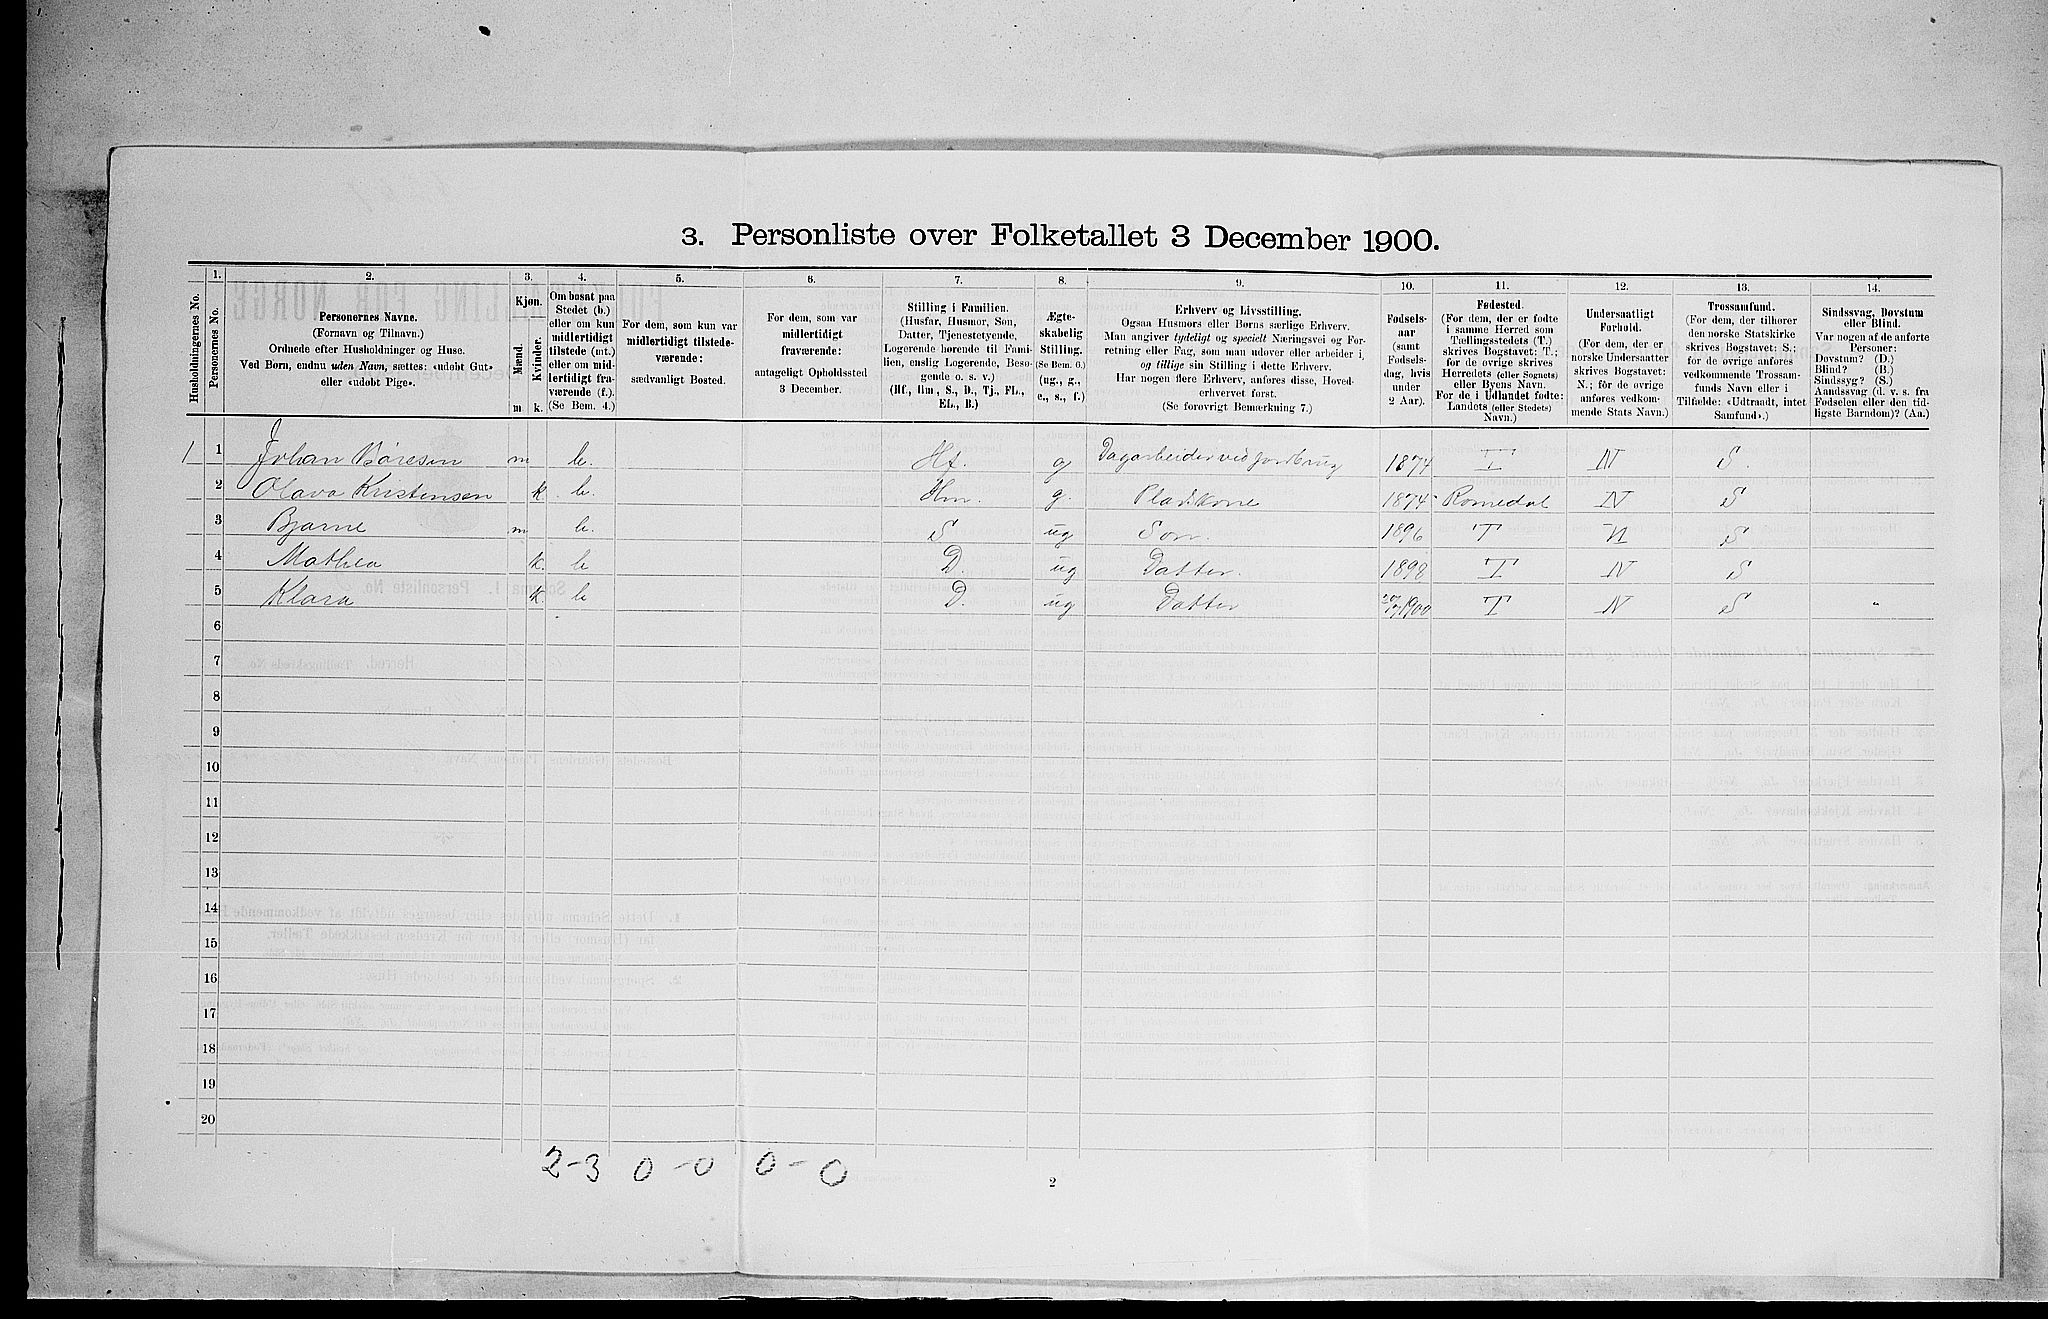 3. Personliste over Folketallet 3 December 1900.
1. 2. 3. 4. 5. 6. 7. 8. 9. 10. 11. 12. 13. 14.
Husholdningernes No.
Personernes No.
Personernes Navne.
(Fornavn og Tilnavn.)
Ordnede efter Husholdninger og Huse.
Ved Børn, endnu uden Navn, sættes: «udøbt Gut»
eller «udøbt Pige».
Kjøn.
Mænd.
Kvinder.
m k.
Om bosat paa
Stedet (b.)
eller om kun
midlertidigt
tilstede (mt.)
eller om mid-
lertidigt fra-
værende (f.).
(Se Bem. 4.)
For dem, som kun var
midlertidigt tilstede-
værende:
sædvanligt Bosted.
For dem, som var
midlertidigt
fraværende:
antageligt Opholdssted
3 December.
Stilling i Familien.
(Husfar, Husmor, Søn,
Datter, Tjenestetyende,
Logerende hørende til Fami-
lien, enslig Logerende, Besø-
gende o. s. v.)
(Hf., Hm., S., D., Tj., FL.,
EL., B.)
Ægte-
skabelig
Stilling.
(Se Bem. 6.)
(ug., g.,
e., s., f.)
Erhverv og Livsstilling.
Ogsaa Husmors eller Børns særlige Erhverv.
Man angiver tydeligt og specielt Næringsvei og For-
retning eller Fag, som man udøver eller arbeider i,
og tillige sin Stilling i dette Erhverv.
Har nogen flere Erhverv, anføres disse, Hoved-
erhvervet først.
(Se forøvrigt Bemærkning 7.)
Fødsels-
aar
(samt
Fødsels-
dag, hvis
under
2 Aar).
Fødested.
(For dem, der er fødte
i samme Herred som
Tællingsstedets (T.)
skrives Bogstavet: T.;
for de øvrige skrives
Herredets (eller Sognets)
eller Byens Navn.
For de i Udlandet fødte:
Landets (eller Stedets)
Navn.)
Undersaatligt
Forhold.
(For dem, der er
norske Undersaatter
skrives Bogstavet:
N.; for de øvrige
anføres vedkom-
mende Stats Navn.)
Trossamfund.
(For dem, der tilhører
den norske Statskirke
skrives Bogstavet: S.;
for de øvrige anføres
vedkommende Trossam-
funds Navn eller i
Tilfælde: «Udtraadt, intet
Samfund».)
Sindssvag, Døvstum
eller Blind.
Var nogen af de anførte
Personer:
Døvstum? (D.)
Blind? (B.)
Sindssyg? (S.)
Aandssvag (d. v. s. fra
Fødselen eller den tid-
ligste Barndom)? (Aa.)
1 1 Johan Børesen m b. Hf. g Dagarbeider ved jordbrug 1874 T N S.
2 Olava Kristensen k. b. Hm. g. Pladskone 1874 Romedal N S
3 Bjarne m b. S ug Søn. 1896 T N S
4 Mathea k. b D. ug Datter. 1898 T N S
5 Klara k b D. ug Datter 1900 T N S "
6
7
8
9
10
11
12
13
14
15
16
17
18
19
20
2-3 0-0 0-0
2